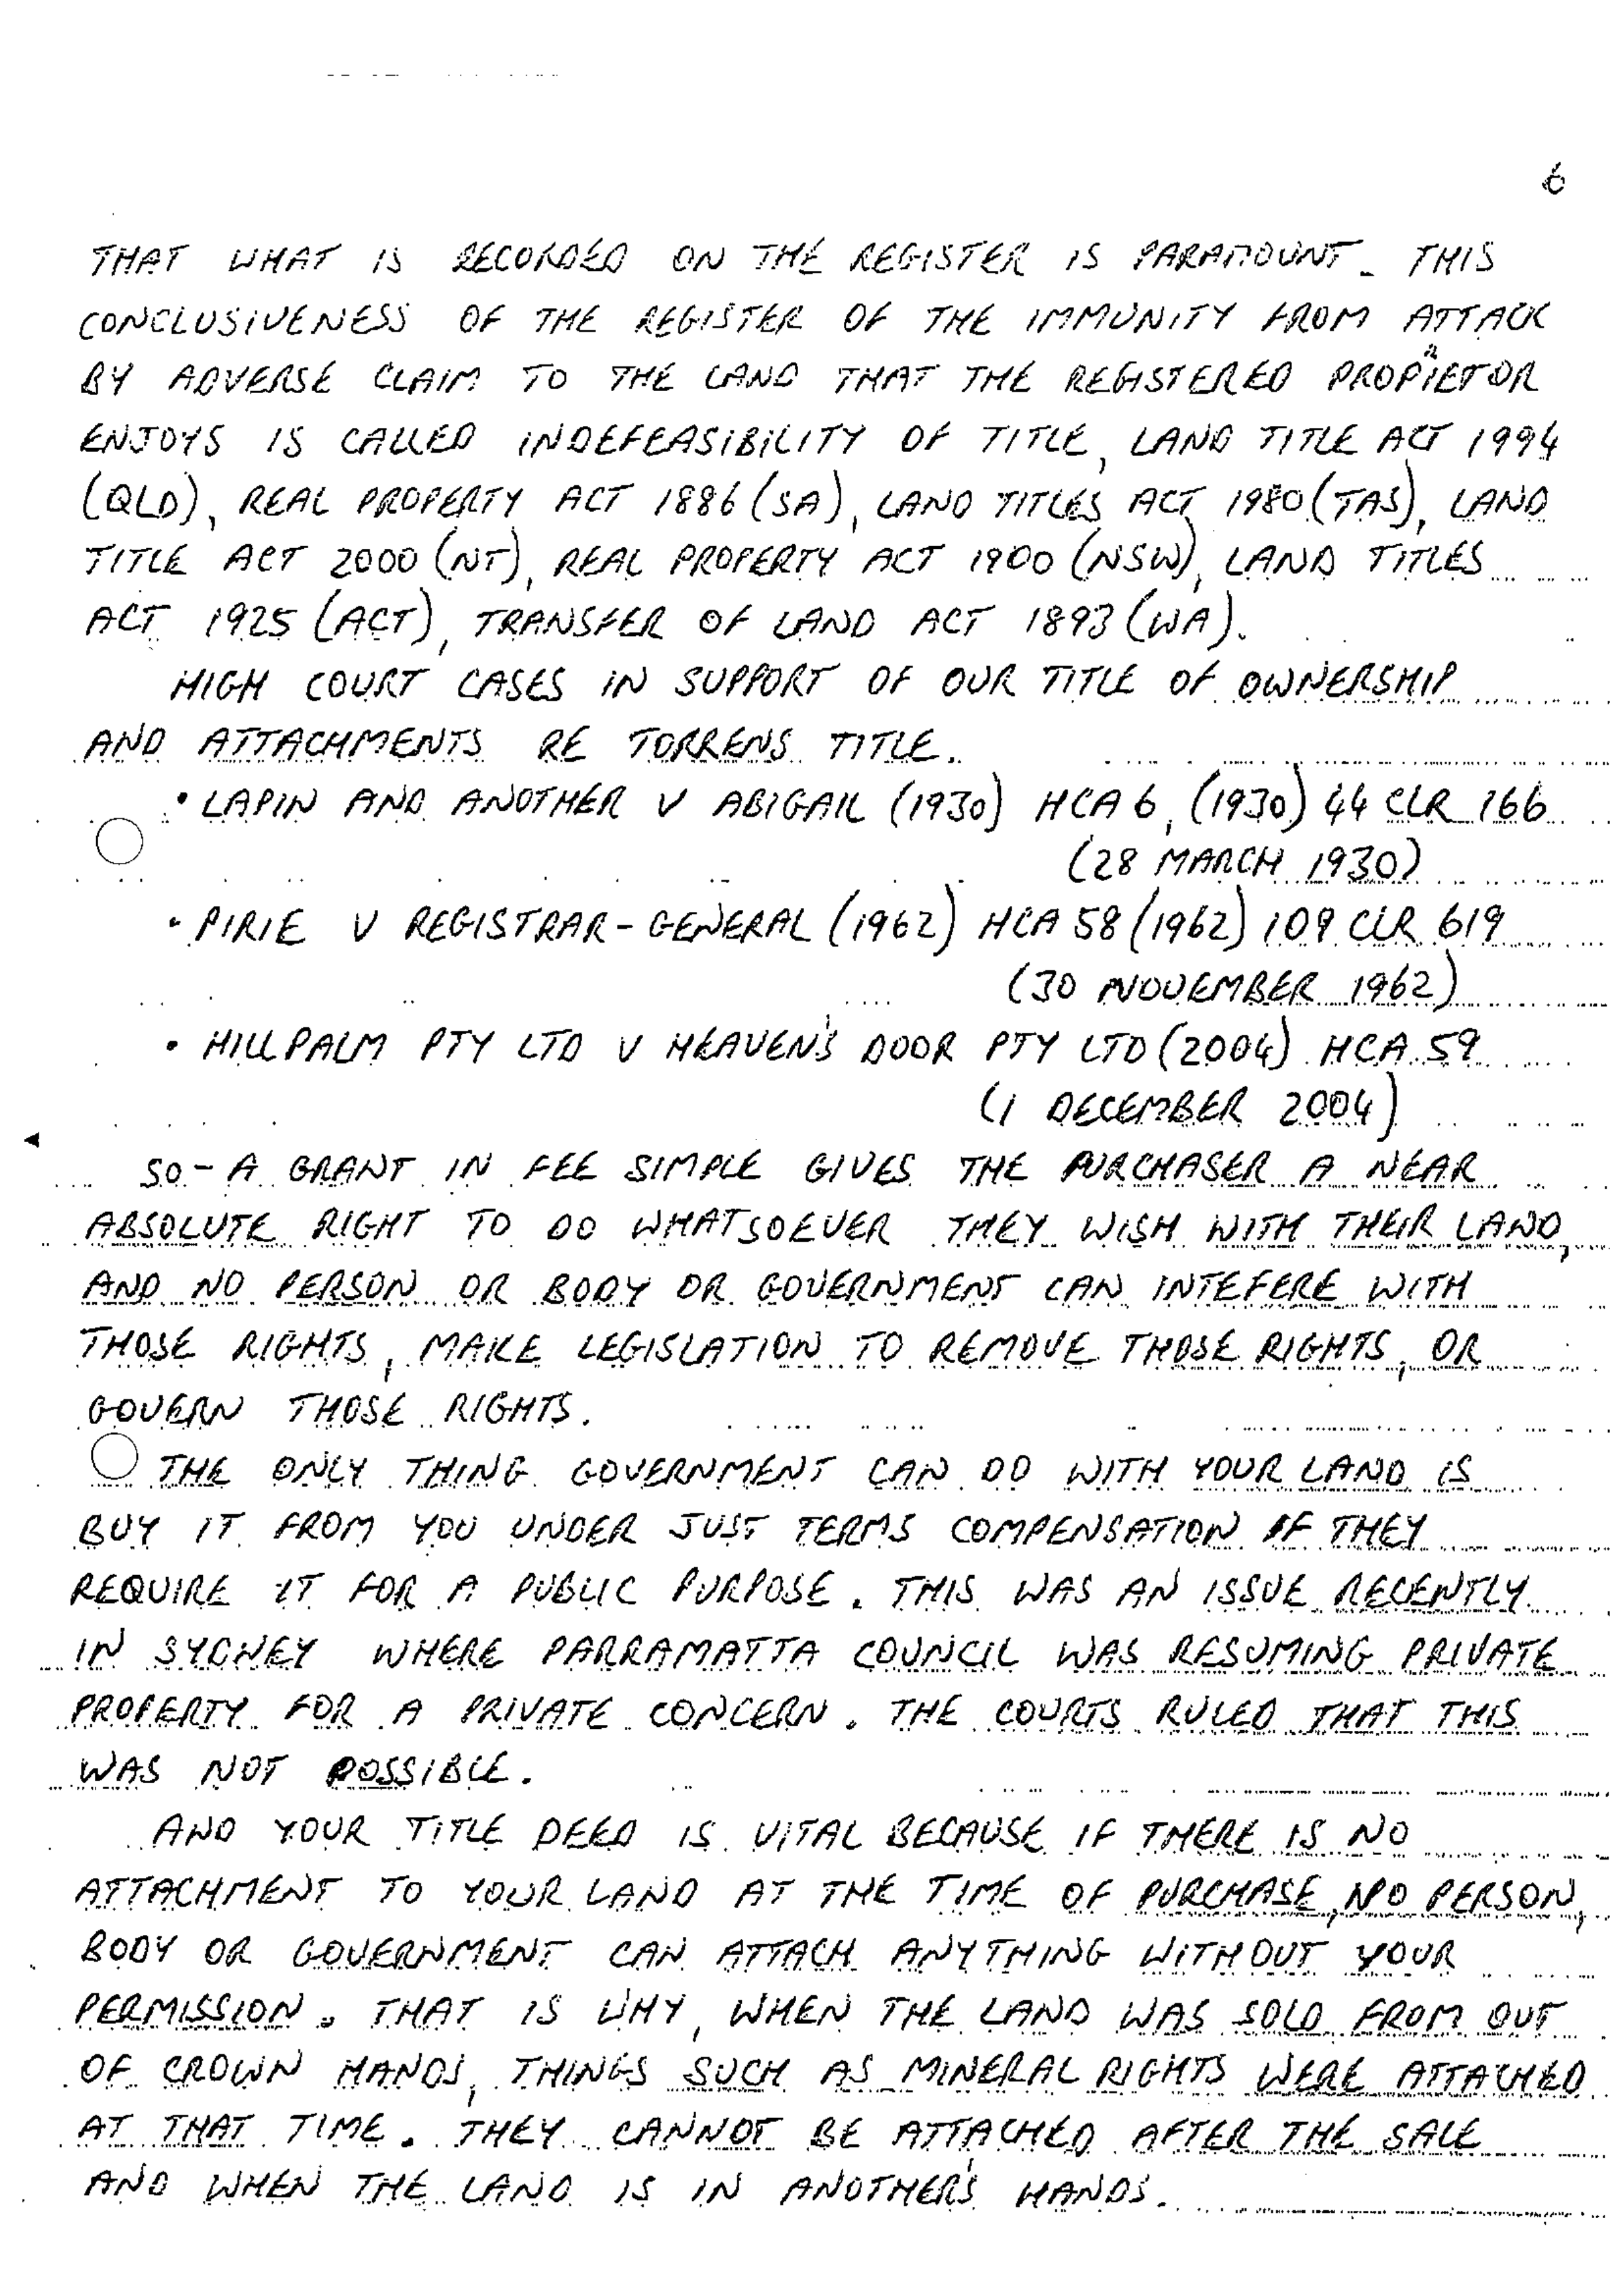 6
THAT WHAT IS RECORDED ON THE REGISTER IS PARAMOUNT. THIS
CONCLUSIVENESS OF THE REGISTER OF THE IMMUNITY FROM ATTACK
BY ADVERSE CLAIM TO THE LAND THAT THE REGISTERED PROPRIETOR
ENJOYS IS CALLED INDEFEASIBILITY OF TITLE, LAND TITLE ACT 1994
(QLD), REAL PROPERTY ACT 1886 (SA), LAND TITLES ACT 1980 (TAS), LAND
TITLE ACT 2000 (NT), REAL PROPERTY ACT 1900 (NSW), LAND TITLES
ACT 1925 (ACT), TRANSFER OF LAND ACT 1893 (WA).
HIGH COURT CASES IN SUPPORT OF OUR TITLE OF OWNERSHIP
AND ATTACHMENTS RE TORRENS TITLE.
• LAPIN AND ANOTHER V ABIGAIL (1930) HCA 6, (1930) 44 CLR 166
(28 MARCH 1930)
• PIRIE V REGISTRAR-GENERAL (1962) HCA 58 (1962) 109 CLR 619
(30 NOVEMBER 1962)
• HILLPALM PTY LTD V HEAVEN'S DOOR PTY LTD (2004) HCA 59
(1 DECEMBER 2004)
SO - A GRANT IN FEE SIMPLE GIVES THE PURCHASER A NEAR
ABSOLUTE RIGHT TO DO WHATSOEVER THEY WISH WITH THEIR LAND,
AND NO PERSON OR BODY OR GOVERNMENT CAN INTEFERE WITH
THOSE RIGHTS, MAKE LEGISLATION TO REMOVE THOSE RIGHTS, OR
GOVERN THOSE RIGHTS.
THE ONLY THING GOVERNMENT CAN DO WITH YOUR LAND IS
BUY IT FROM YOU UNDER JUST TERMS COMPENSATION IF THEY
REQUIRE IT FOR A PUBLIC PURPOSE. THIS WAS AN ISSUE RECENTLY
IN SYDNEY WHERE PARRAMATTA COUNCIL WAS RESUMING PRIVATE
PROPERTY FOR A PRIVATE CONCERN. THE COURTS RULED THAT THIS
WAS NOT POSSIBLE.
AND YOUR TITLE DEED IS VITAL BECAUSE IF THERE IS NO
ATTACHMENT TO YOUR LAND AT THE TIME OF PURCHASE, NO PERSON,
BODY OR GOVERNMENT CAN ATTACH ANYTHING WITHOUT YOUR
PERMISSION. THAT IS WHY, WHEN THE LAND WAS SOLD FROM OUT
OF CROWN HANDS, THINGS SUCH AS MINERAL RIGHTS WERE ATTACHED
AT THAT TIME. THEY CANNOT BE ATTACHED AFTER THE SALE
AND WHEN THE LAND IS IN ANOTHER'S HANDS.